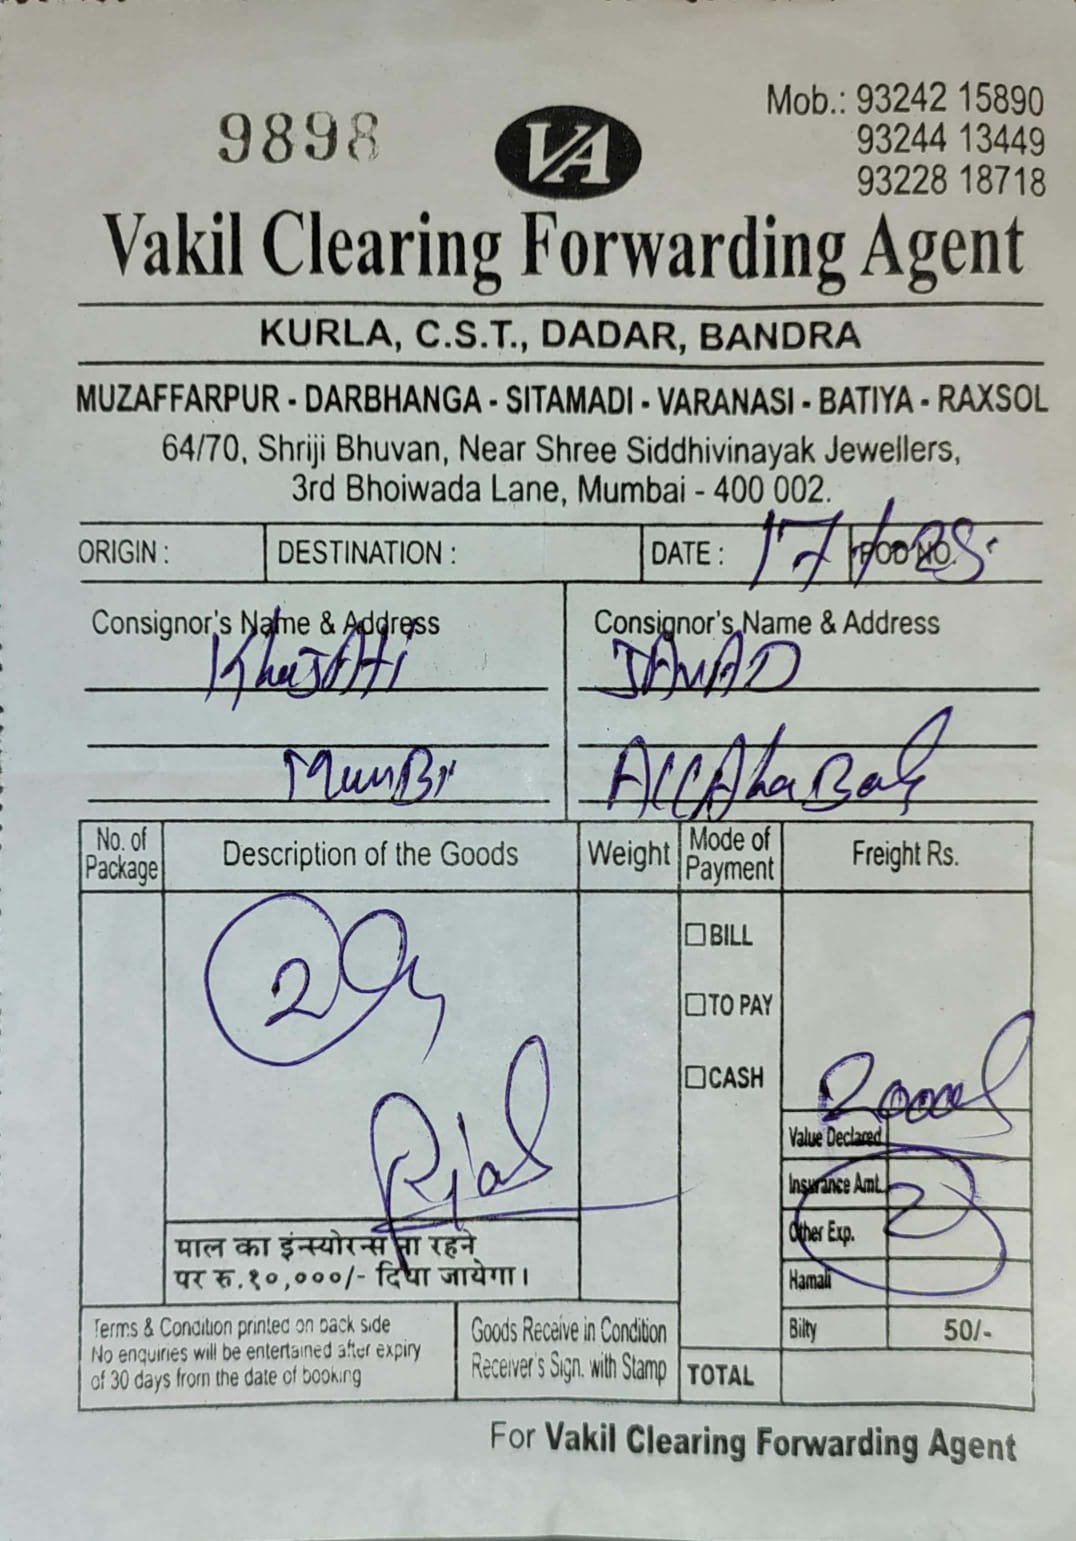 9898
VA
Mob.: 93242 15890
93244 13449
93228 18718
Vakil Clearing Forwarding Agent
KURLA, C.S.T., DADAR, BANDRA
MUZAFFARPUR - DARBHANGA - SITAMADI - VARANASI - BATIYA - RAXSOL
64/70, Shriji Bhuvan, Near Shree Siddhivinayak Jewellers,
3rd Bhoiwada Lane, Mumbai - 400 002.
ORIGIN : DESTINATION : DATE : POD NO.
Consignor's Name & Address
Consignor's Name & Address
JAWAD
No. of Package
Description of the Goods
Weight
Mode of Payment
Freight Rs.
2
BILL
TO PAY
CASH
Value Declared
Insurance Amt.
Other Exp.
2
Hamali
Bilty 50/-
TOTAL
माल का इंन्स्योरन्स ना रहने
पर रु.१०,०००/- दिया जायेगा।
Terms & Condition printed on back side
No enquiries will be entertained after expiry
of 30 days from the date of booking
Goods Receive in Condition
Receiver's Sign. with Stamp
For Vakil Clearing Forwarding Agent